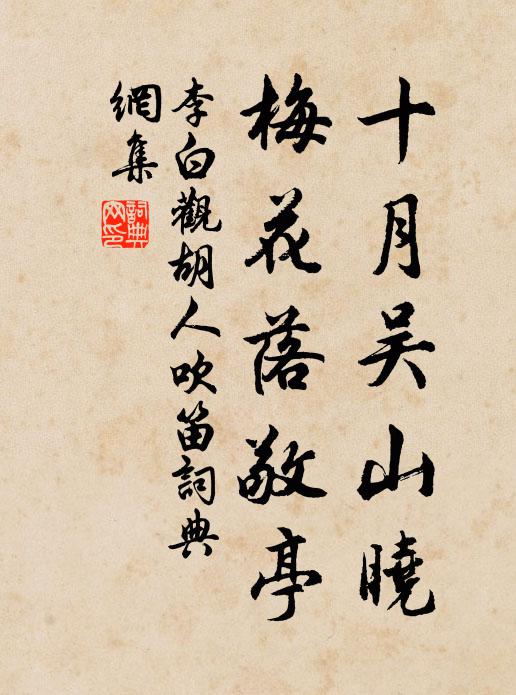 十月吴山曉
梅花落敬亭
李白觀胡人吹笛詞典
網集
詞典网印